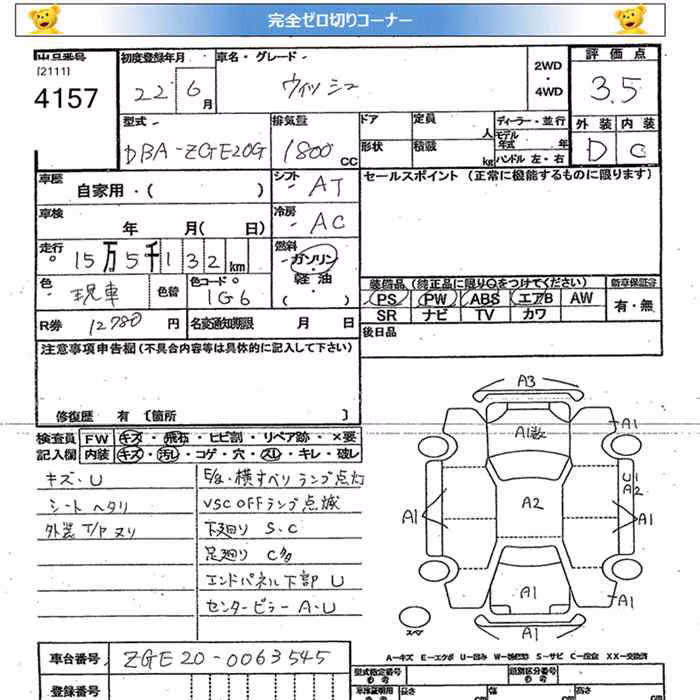 完全ゼロ切りコーナー
出品番号 初度登録年月 車名・グレード 2WD・4WD 評価点
[2111]
4157 22 6月 ウィッシュ 3.5
型式 排気量 ドア 定員 人 ディーラー・並行 外装 内装
DBA-ZGE20G 1800cc 形状 積載 kg モデル年式 年 D C
ハンドル 左・右
車歴 自家用・( ) シフト AT セールスポイント (正常に機能するものに限ります)
車検 年 月( 日) 冷房 AC
走行 15万5千132km 燃料 ガソリン・軽油・( )
色 現車 色替 色コード 1G6 装備品 (純正品に限り○をつけてください) 新車保証書
PS PW ABS エアB AW 有・無
SR ナビ TV カワ
R券 12780円 名変通知期限 月 日 後日品
注意事項申告欄 (不具合内容等は具体的に記入して下さい)
修復歴 有 〔箇所 〕
検査員 FW キズ・飛石・ヒビ割・リペア跡・×要
記入欄 内装 キズ・汚し・コゲ・穴・スレ・キレ・破レ
キズ・U
シートヘタリ
外装 T/P ヌリ
E/g・横すべりランプ点灯
VSC OFFランプ点滅
下廻り S.C
足廻り C多
エンドパネル下部 U
センターピラー A・U
A3
A1
A1数
U1
A2
A2
A1
A1
A1
A1
A1
スペア
A-キズ E-エクボ U-凹み S-サビ C-腐食 XX-交換済
車台番号 ZGE20-0063545
型式指定番号 類別区分番号
登録番号 長さ cm 幅 cm 高さ cm